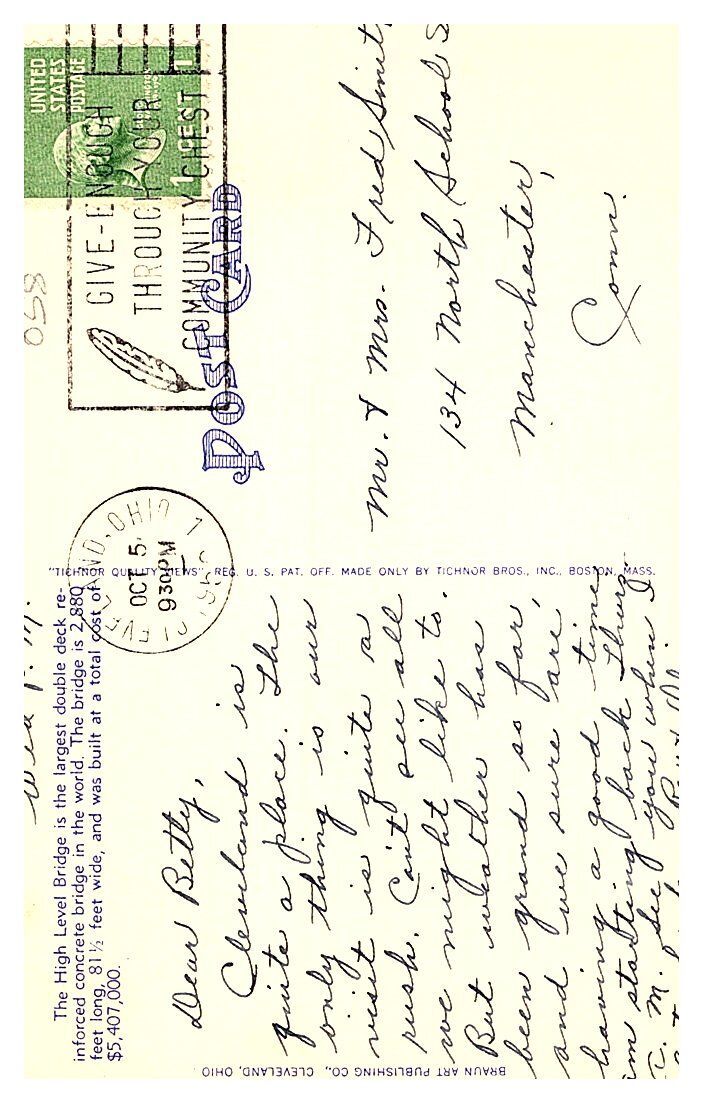 The High Level Bridge is the largest double deck re-
inforced concrete bridge in the world. The bridge is 2,880
feet long, 81½ feet wide, and was built at a total cost of
$5,407,000.
Wed P. M.
Dear Betty,
Cleveland is
quite a place. The
only thing is our
visit is quite a
rush. Can't see all
we might like to.
But weather has
been grand so far,
and we sure are
having a good time
am starting back Thurs
M. See you when I
"TICHNOR QUALITY VIEWS" REG. U. S. PAT. OFF. MADE ONLY BY TICHNOR BROS., INC., BOSTON, MASS.
BRAUN ART PUBLISHING CO., CLEVELAND, OHIO
POST CARD
CLEVELAND, OHIO 1
OCT 5
930PM
1950
GIVE-ENOUGH
THROUGH YOUR
COMMUNITY CHEST
UNITED
STATES
POSTAGE
1 CENT 1
058
Mr. & Mrs. Fred Smit
134 North School S
Manchester,
Conn.